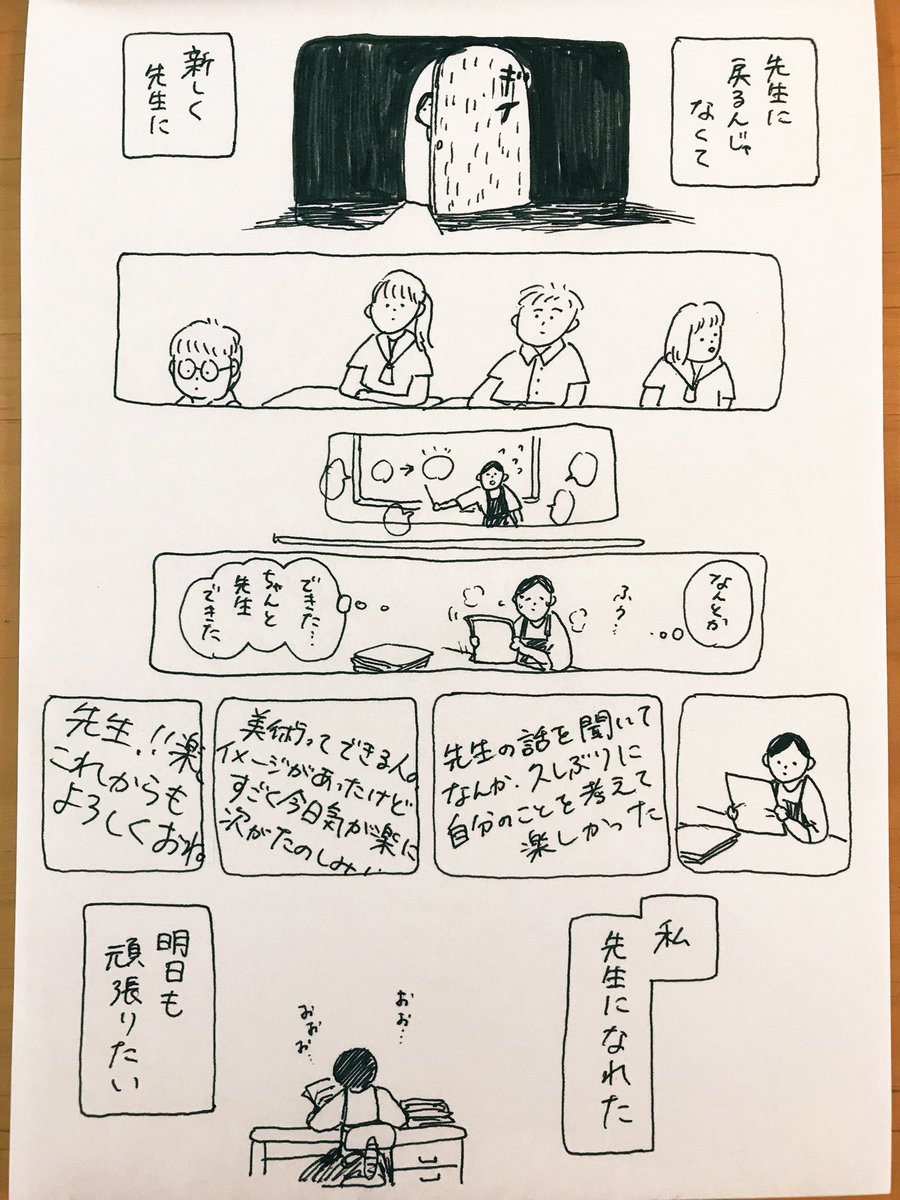 先生に
戻るんじゃ
なくて
ギイ
新しく
先生に
なんとか
ふぅ…
できた…
ちゃんと
先生
できた
先生の話を聞いて
なんか、久しぶりに
自分のことを考えて
楽しかった
美術ってできる人の
イメージがあったけど
すごく今日気が楽に
次がたのしみ
先生!!楽
これからも
よろしくおね
私
先生になれた
おお…
おおお…
明日も
頑張りたい